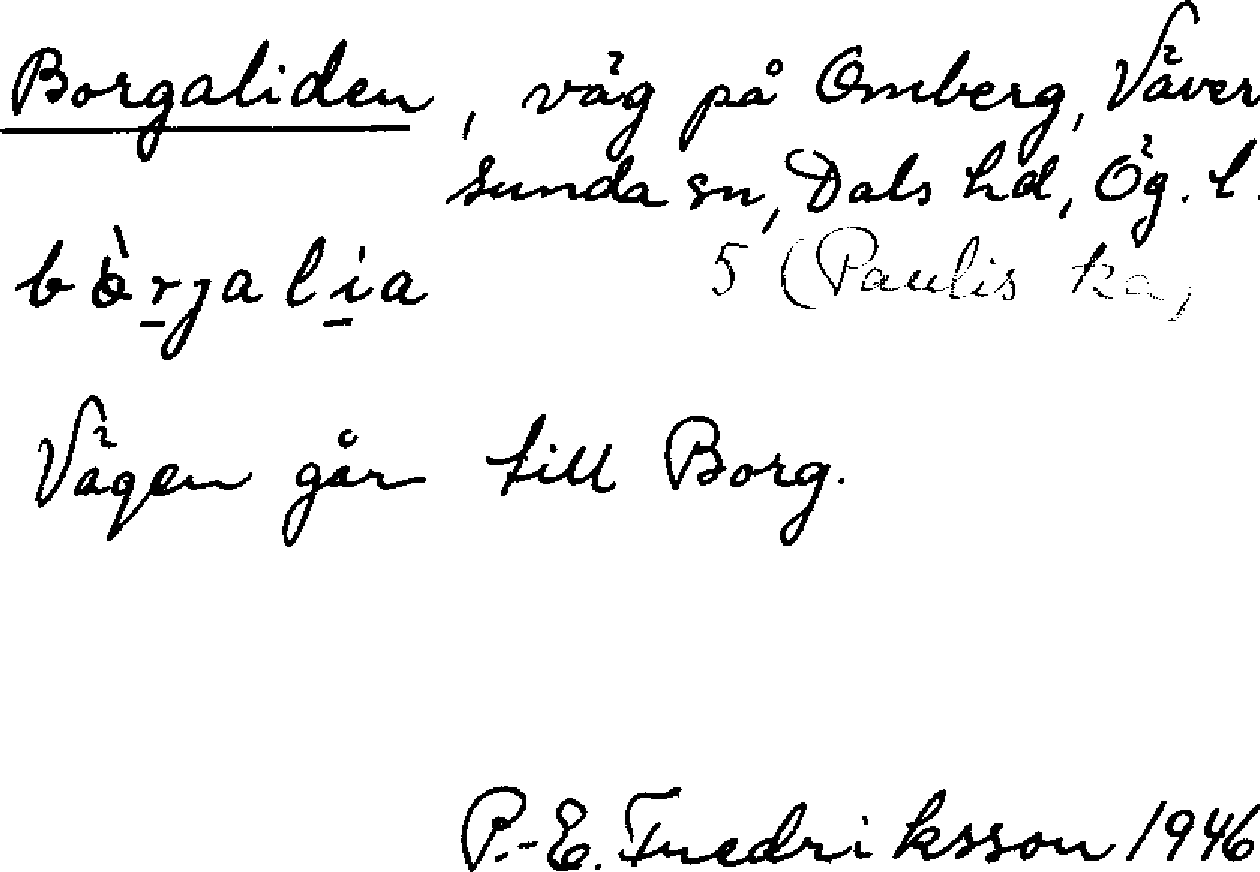 Borgaliden, väg på Omberg, Väver
sunda sn, Dals hd, Ög. l.
bòrjalia 5 (Paulis ka,
Vägen går till Borg.
P.-E. Fredriksson 1946